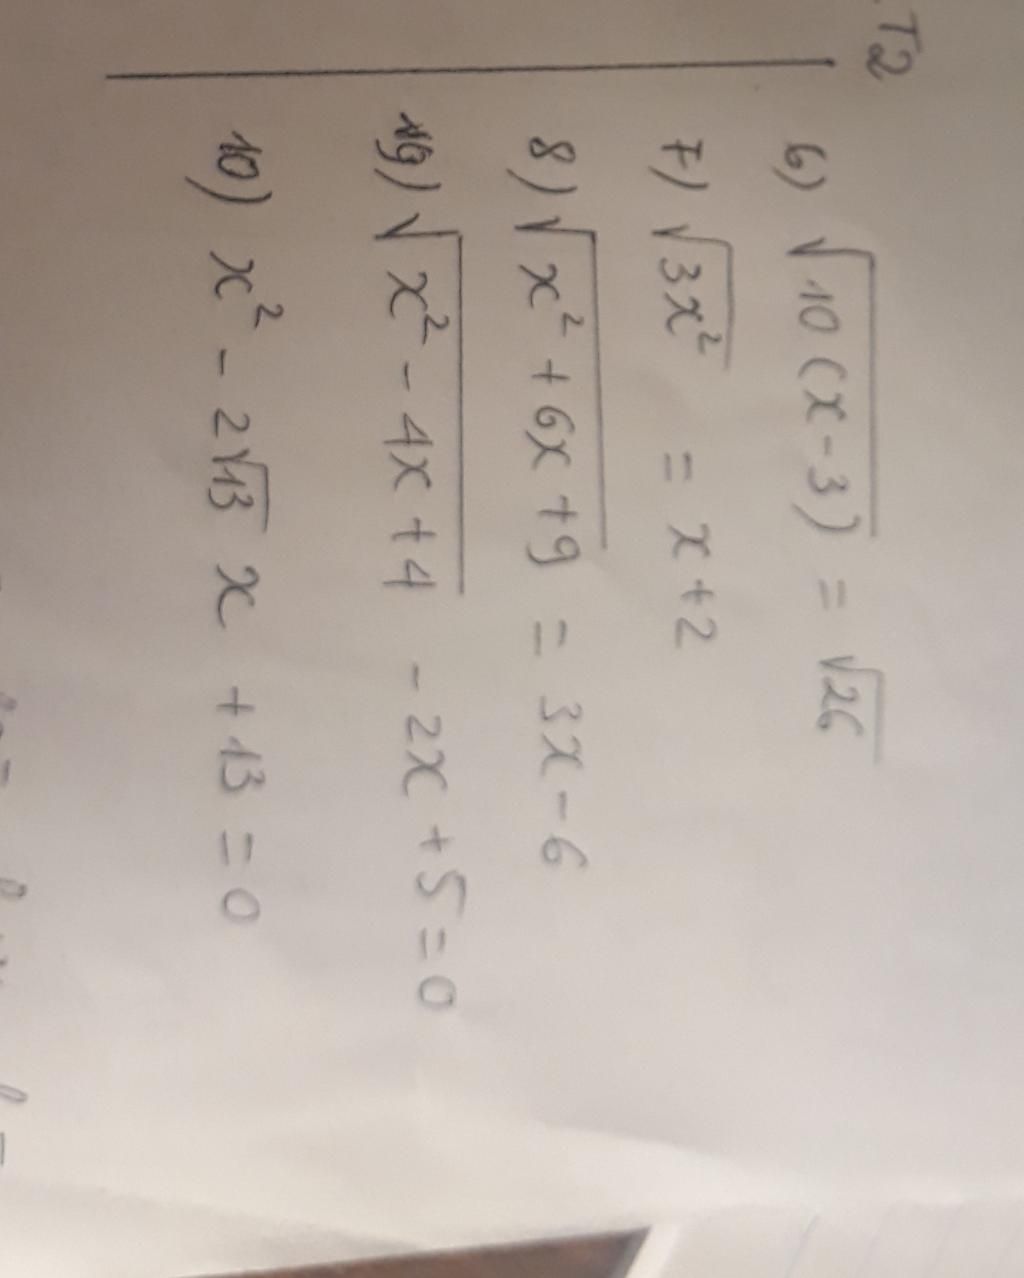 T2
6) √10(x-3) = √26
7) √3x² = x+2
8) √x²+6x+9 = 3x-6
9) √x²-4x+4 - 2x+5=0
10) x² - 2√13 x + 13 = 0